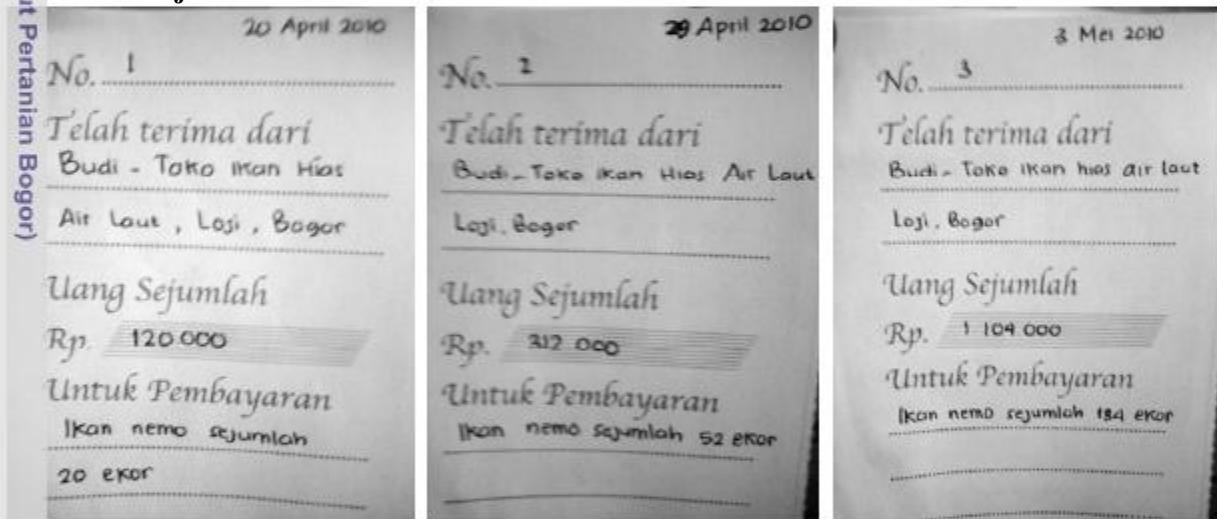 ut Pertanian Bogor)
20 April 2010
No. 1
Telah terima dari
Budi - Toko Ikan Hias
Air Laut, Losi, Bogor
Uang Sejumlah
Rp. 120.000
Untuk Pembayaran
Ikan nemo sejumlah
20 ekor
29 April 2010
No. 2
Telah terima dari
Budi - Toko Ikan Hias Air Laut
Loji, Bogor
Uang Sejumlah
Rp. 312 000
Untuk Pembayaran
Ikan nemo sejumlah 52 ekor
3 Mei 2010
No. 3
Telah terima dari
Budi - Toko ikan hias air laut
Loji, Bogor
Uang Sejumlah
Rp. 1 104 000
Untuk Pembayaran
Ikan nemo sejumlah 184 ekor